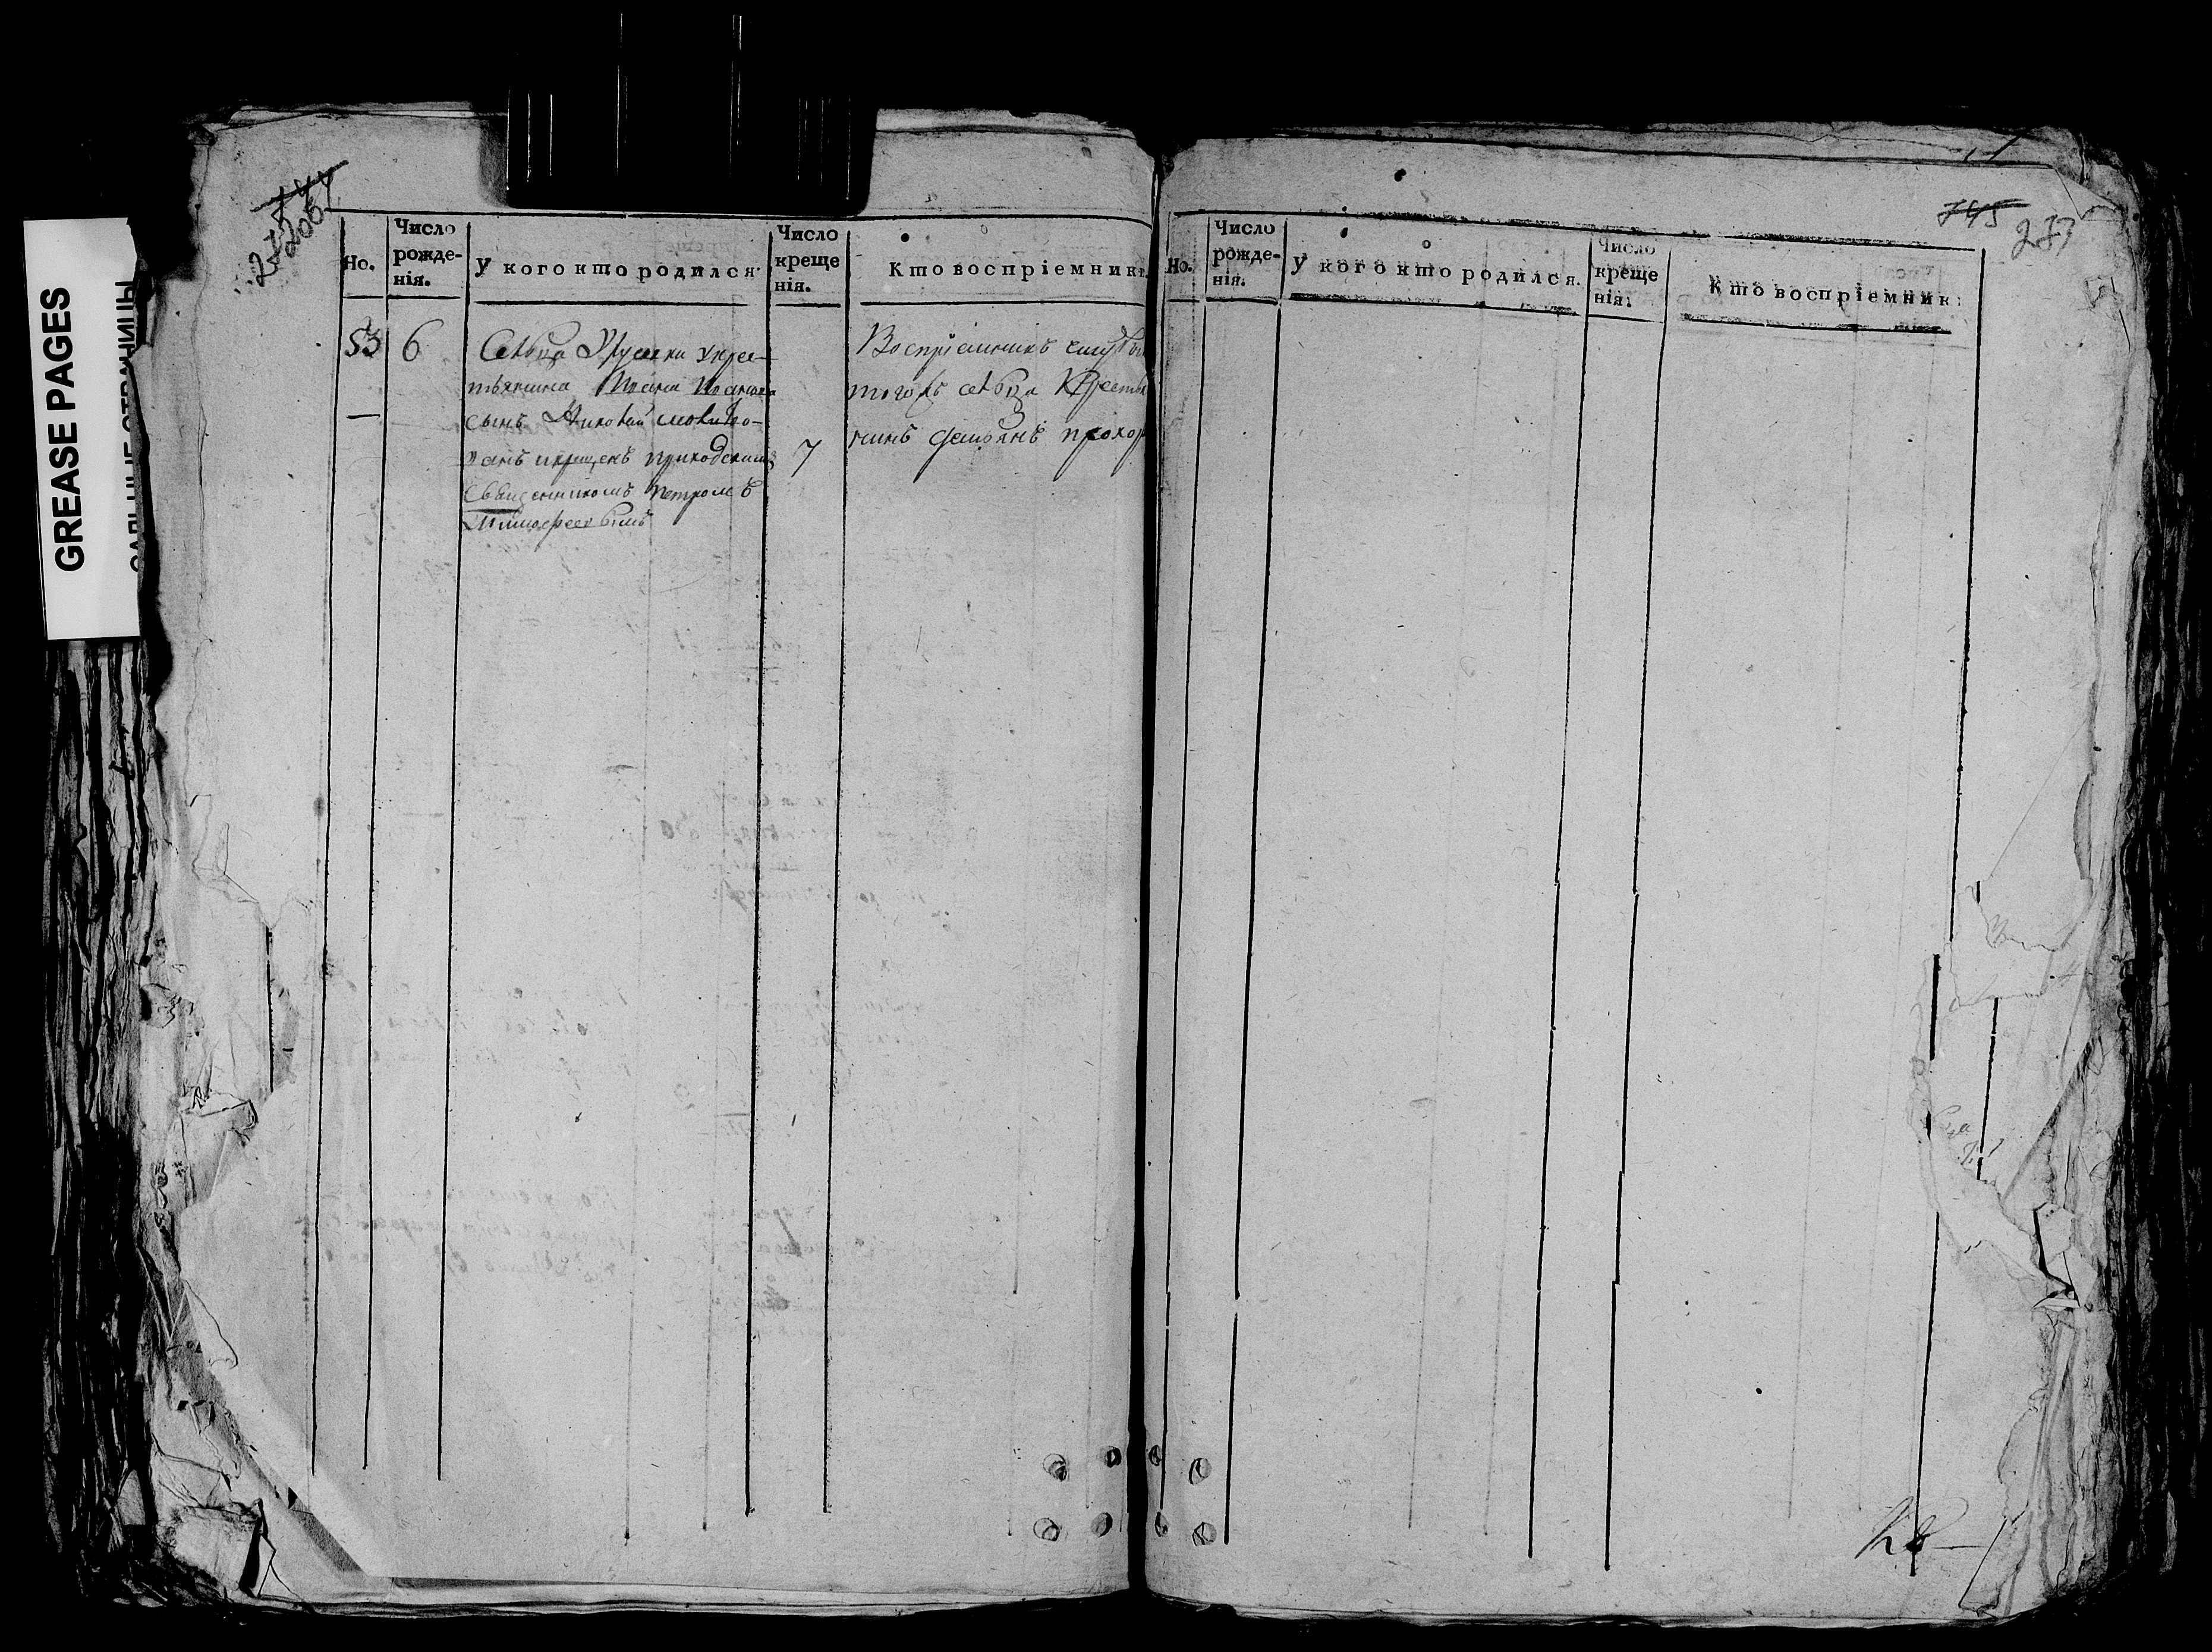 GREASE PAGES
САЛЬНЫЕ СТРАНИЦЫ
Но.
Число рожде-нія.
У кого кто родился.
Число креще нія.
Кто воспріемники.
53
6
Селца у крес-
тьянина Ивана Иванова
сынъ Николай молитво-
ванъ и крещенъ приходскимъ
Священникомъ Петромъ
Тимофеевымъ
7
Воспріемникъ ему былъ
тогожъ селца Крестья
нинъ Демьянъ прохор
745
277
Но.
Число рожде-нія.
У кого кто родился.
Число креще нія.
Кто воспріемник: